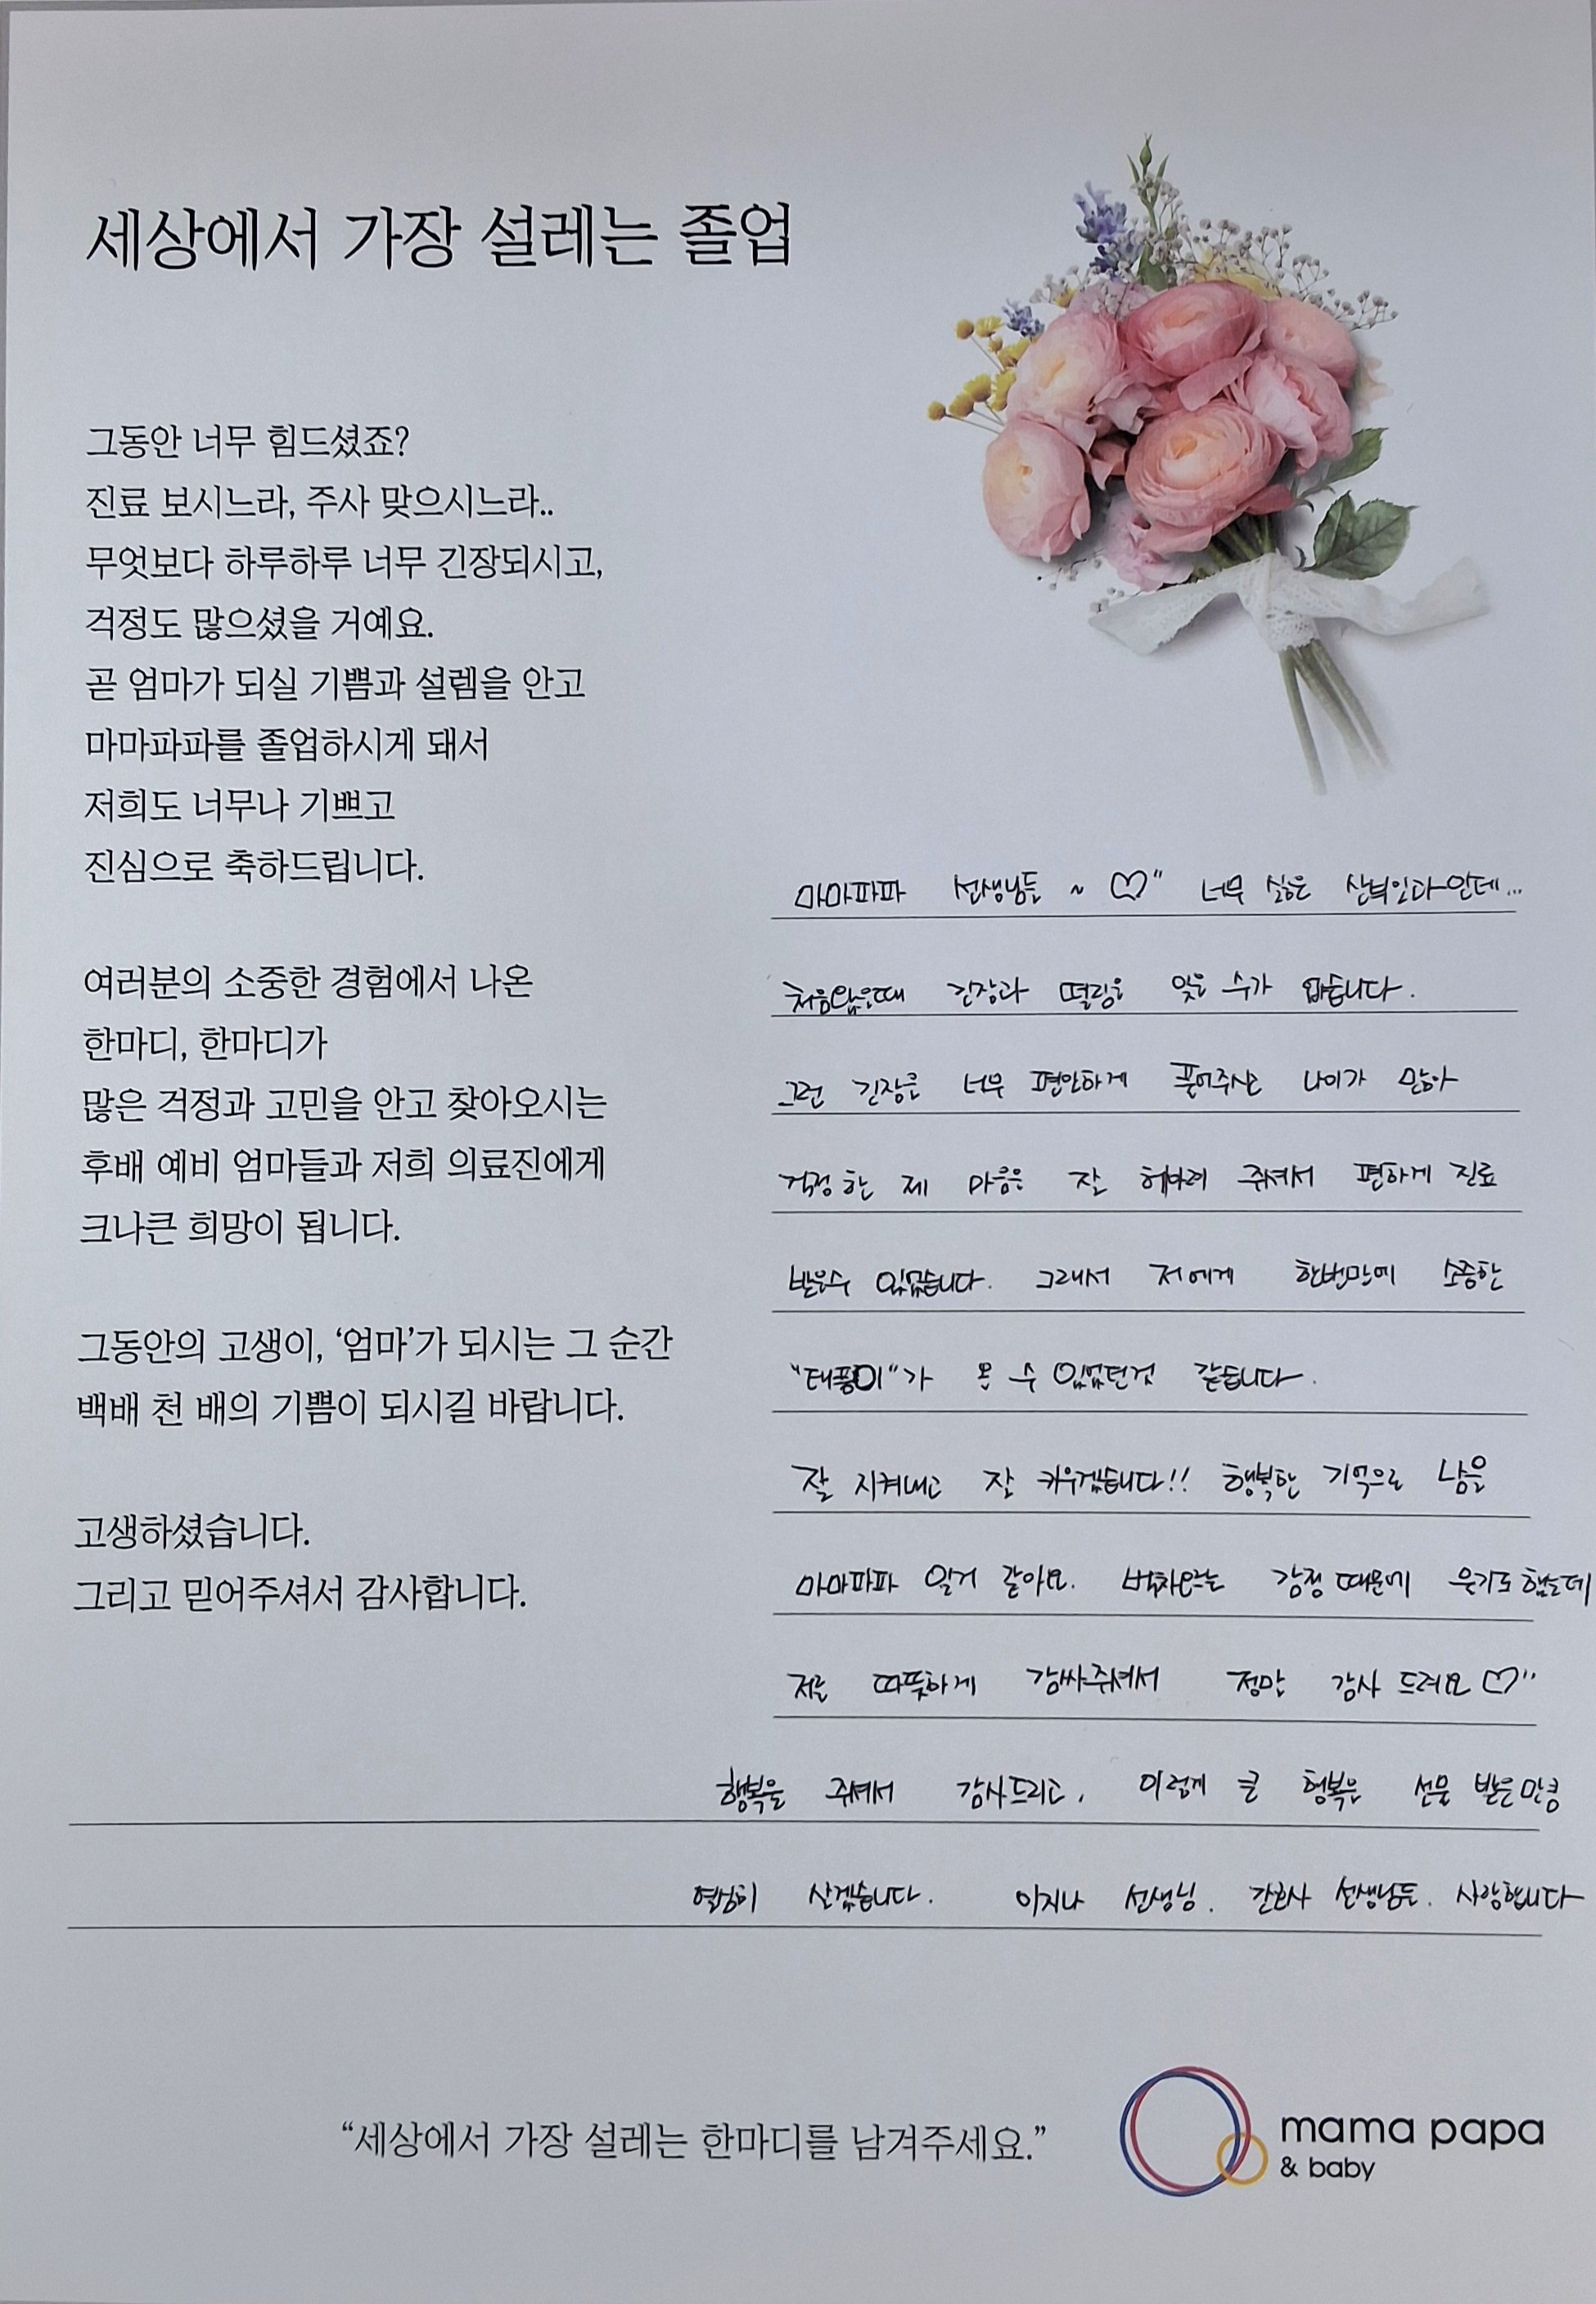 세상에서 가장 설레는 졸업
그동안 너무 힘드셨죠?
진료 보시느라, 주사 맞으시느라..
무엇보다 하루하루 너무 긴장되시고,
걱정도 많으셨을 거예요.
곧 엄마가 되실 기쁨과 설렘을 안고
마마파파를 졸업하시게 돼서
저희도 너무나 기쁘고
진심으로 축하드립니다.
여러분의 소중한 경험에서 나온
한마디, 한마디가
많은 걱정과 고민을 안고 찾아오시는
후배 예비 엄마들과 저희 의료진에게
크나큰 희망이 됩니다.
그동안의 고생이, ‘엄마’가 되시는 그 순간
백배 천 배의 기쁨이 되시길 바랍니다.
고생하셨습니다.
그리고 믿어주셔서 감사합니다.
마마파파 선생님들 ~ ♡" 너무 싫은 산부인과인데...
처음왔을때 긴장과 떨림을 잊을 수가 없습니다.
그런 긴장을 너무 편안하게 풀어주시고 나이가 많아
걱정한 제 마음을 잘 헤아려 주셔서 편하게 진료
받을수 있었습니다. 그래서 저에게 한번만에 소중한
"태풍이"가 올 수 있었던것 같습니다.
잘 지켜내고 잘 키우겠습니다!! 행복한 기억으로 남을
마마파파 일거 같아요. 벅차오르는 감정 때문에 울기도 했는데
저를 따뜻하게 감싸주셔서 정말 감사 드려요 ♡"
행복을 주셔서 감사드리고, 이렇게 큰 행복을 선물 받은만큼
열심히 살겠습니다. 이지나 선생님. 간호사 선생님들. 사랑합니다
“세상에서 가장 설레는 한마디를 남겨주세요.”
mama papa
& baby